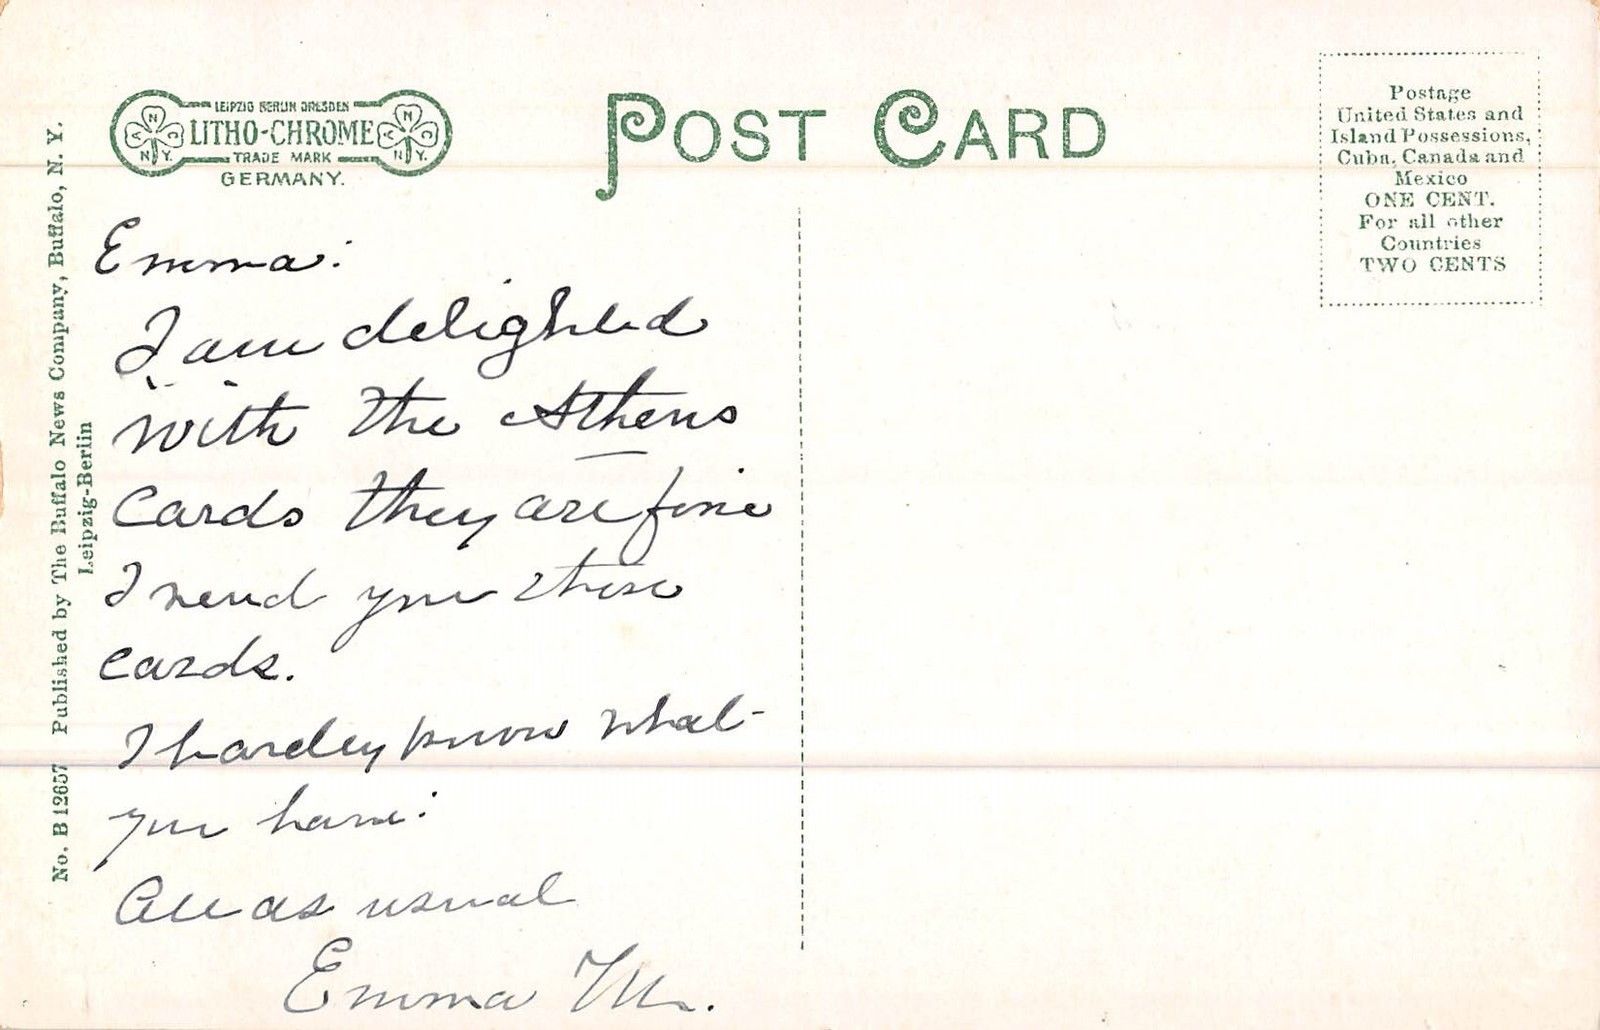 LEIPZIG BERLIN DRESDEN
LITHO-CHROME
TRADE MARK
GERMANY.
A N C
N.Y.
A N C
N.Y.
POST CARD
Postage
United States and
Island Possessions,
Cuba, Canada and
Mexico
ONE CENT.
For all other
Countries
TWO CENTS
No. B 12657 Published by The Buffalo News Company, Buffalo, N. Y.
Leipzig-Berlin
Emma:
I am delighted
with the Athens
cards they are fine
I send you these
cards.
I hardley know what
you have:
All as usual
Emma M.